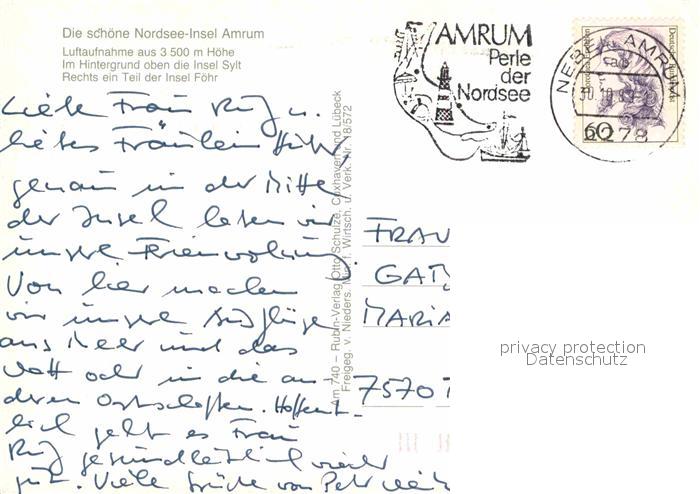 Die schöne Nordsee-Insel Amrum
Luftaufnahme aus 3 500 m Höhe
Im Hintergrund oben die Insel Sylt
Rechts ein Teil der Insel Föhr
AMRUM
Perle
der
Nordsee
NEBEL, AMRUM
2278
60
Liebe Frau Ruf u.
liebes Fräulein
genau in der Mitte
der Insel leben wir
unsere Ferienwohnung.
Von hier machen
wir unsere Ausflüge
ans Meer und das
Watt oder in die an-
deren Ortschaften. Hoffent-
lich geht es Frau
Ruf gesundheitlich wieder
gut. Viele Grüße von Petr
Am 740 – Rubin-Verlag Otto Schulze, Cuxhaven und Lübeck
Freigeg. v. Nieders. Min. f. Wirtsch. u. Verk. Nr. 18/572
FRAU
GAT
MARIA
7570
privacy protection
Datenschutz